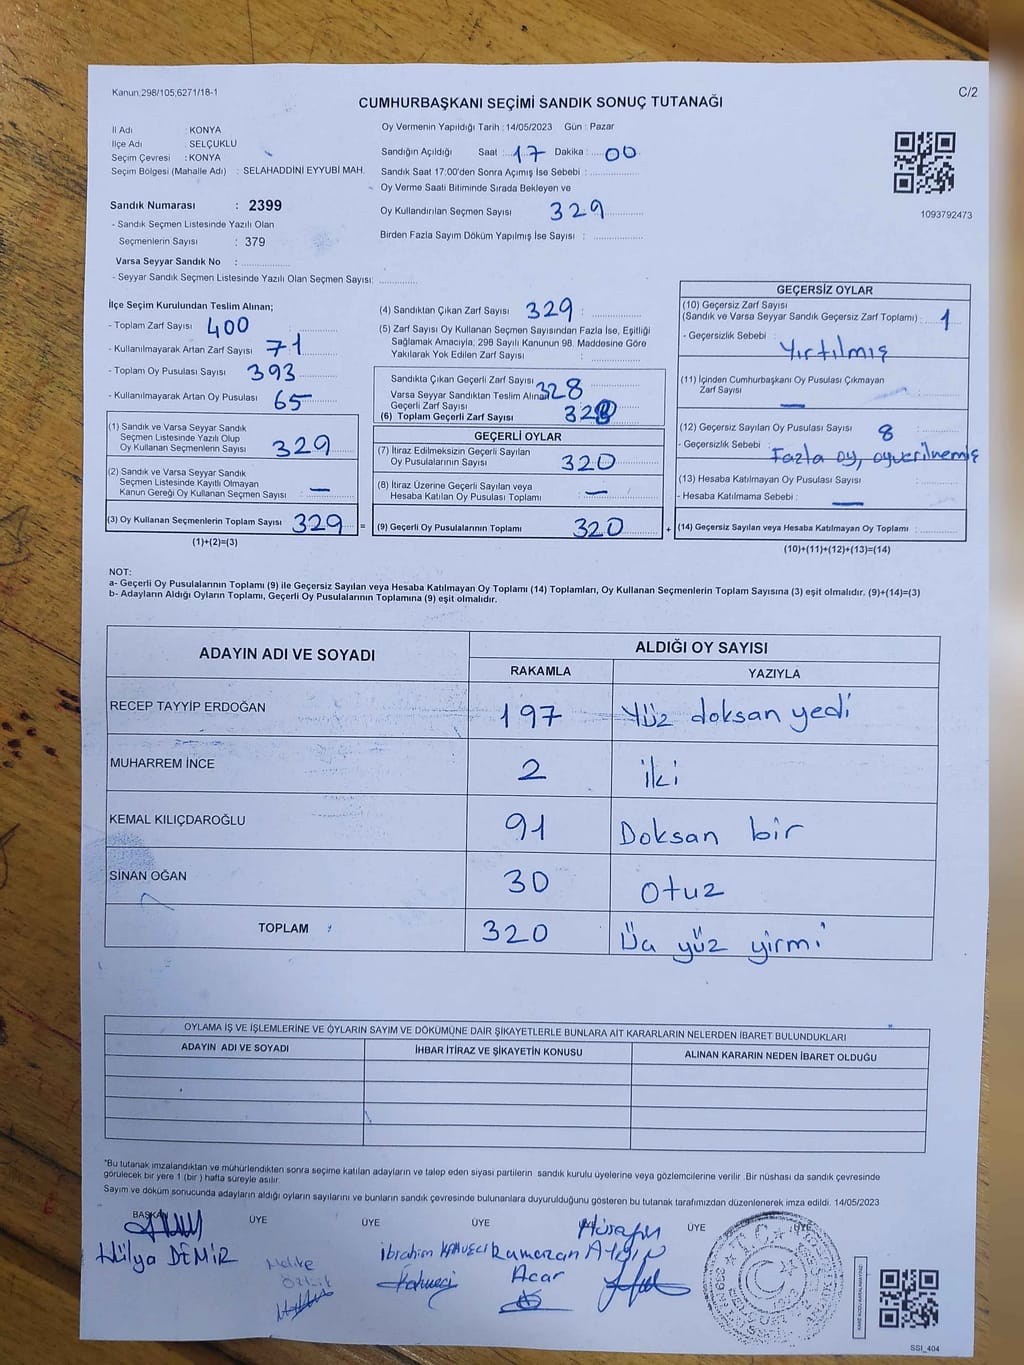 Kanun 298/105;6271/18-1
C/2
CUMHURBAŞKANI SEÇİMİ SANDIK SONUÇ TUTANAĞI
İl Adı : KONYA
İlçe Adı : SELÇUKLU
Seçim Çevresi : KONYA
Seçim Bölgesi (Mahalle Adı) : SELAHADDİNİ EYYUBİ MAH.
Sandık Numarası : 2399
- Sandık Seçmen Listesinde Yazılı Olan
Seçmenlerin Sayısı : 379
Varsa Seyyar Sandık No :
- Seyyar Sandık Seçmen Listesinde Yazılı Olan Seçmen Sayısı:
Oy Vermenin Yapıldığı Tarih : 14/05/2023 Gün : Pazar
Sandığın Açıldığı Saat : 17 Dakika : 00
Sandık Saat 17:00'den Sonra Açımış İse Sebebi :
Oy Verme Saati Bitiminde Sırada Bekleyen ve
Oy Kullandırılan Seçmen Sayısı 329
Birden Fazla Sayım Döküm Yapılmış İse Sayısı :
1093792473
İlçe Seçim Kurulundan Teslim Alınan;
- Toplam Zarf Sayısı 400
- Kullanılmayarak Artan Zarf Sayısı 71
- Toplam Oy Pusulası Sayısı 393
- Kullanılmayarak Artan Oy Pusulası 65
(1) Sandık ve Varsa Seyyar Sandık
Seçmen Listesinde Yazılı Olup
Oy Kullanan Seçmenlerin Sayısı 329
(2) Sandık ve Varsa Seyyar Sandık
Seçmen Listesinde Kayıtlı Olmayan
Kanun Gereği Oy Kullanan Seçmen Sayısı : —
(3) Oy Kullanan Seçmenlerin Toplam Sayısı 329 =
(1)+(2)=(3)
(4) Sandıktan Çıkan Zarf Sayısı 329
(5) Zarf Sayısı Oy Kullanan Seçmen Sayısından Fazla İse, Eşitliği
Sağlamak Amacıyla; 298 Sayılı Kanunun 98. Maddesine Göre
Yakılarak Yok Edilen Zarf Sayısı :
Sandıkta Çıkan Geçerli Zarf Sayısı 328
Varsa Seyyar Sandıktan Teslim Alınan
Geçerli Zarf Sayısı
(6) Toplam Geçerli Zarf Sayısı 328
GEÇERLİ OYLAR
(7) İtiraz Edilmeksizin Geçerli Sayılan
Oy Pusulalarının Sayısı 320
(8) İtiraz Üzerine Geçerli Sayılan veya
Hesaba Katılan Oy Pusulası Toplamı —
(9) Geçerli Oy Pusulalarının Toplamı 320 +
GEÇERSİZ OYLAR
(10) Geçersiz Zarf Sayısı
(Sandık ve Varsa Seyyar Sandık Geçersiz Zarf Toplamı) : 1
- Geçersizlik Sebebi : Yırtılmış
(11) İçinden Cumhurbaşkanı Oy Pusulası Çıkmayan
Zarf Sayısı —
(12) Geçersiz Sayılan Oy Pusulası Sayısı 8
- Geçersizlik Sebebi : Fazla oy, oyverilnemiş
(13) Hesaba Katılmayan Oy Pusulası Sayısı
- Hesaba Katılmama Sebebi : —
(14) Geçersiz Sayılan veya Hesaba Katılmayan Oy Toplamı :
(10)+(11)+(12)+(13)=(14)
NOT:
a- Geçerli Oy Pusulalarının Toplamı (9) ile Geçersiz Sayılan veya Hesaba Katılmayan Oy Toplamı (14) Toplamları, Oy Kullanan Seçmenlerin Toplam Sayısına (3) eşit olmalıdır. (9)+(14)=(3)
b- Adayların Aldığı Oyların Toplamı, Geçerli Oy Pusulalarının Toplamına (9) eşit olmalıdır.
ADAYIN ADI VE SOYADI
ALDIĞI OY SAYISI
RAKAMLA YAZIYLA
RECEP TAYYİP ERDOĞAN 197 Yüz doksan yedi
MUHARREM İNCE 2 iki
KEMAL KILIÇDAROĞLU 91 Doksan bir
SİNAN OĞAN 30 otuz
TOPLAM 320 Üç yüz yirmi
OYLAMA İŞ VE İŞLEMLERİNE VE OYLARIN SAYIM VE DÖKÜMÜNE DAİR ŞİKAYETLERLE BUNLARA AİT KARARLARIN NELERDEN İBARET BULUNDUKLARI
ADAYIN ADI VE SOYADI İHBAR İTİRAZ VE ŞİKAYETİN KONUSU ALINAN KARARIN NEDEN İBARET OLDUĞU
*Bu tutanak imzalandıktan ve mühürlendikten sonra seçime katılan adayların ve talep eden siyasi partilerin sandık kurulu üyelerine veya gözlemcilerine verilir. Bir nüshası da sandık çevresinde
görülecek bir yere 1 (bir ) hafta süreyle asılır.
Sayım ve döküm sonucunda adayların aldığı oyların sayılarını ve bunların sandık çevresinde bulunanlara duyurulduğunu gösteren bu tutanak tarafımızdan düzenlenerek imza edildi. 14/05/2023
BAŞKAN ÜYE ÜYE ÜYE ÜYE ÜYE ÜYE
Hülya DEMİR
İbrahim KAHVECİ
Kahveci
Ramazan
Acar
T.C.
SSI_404